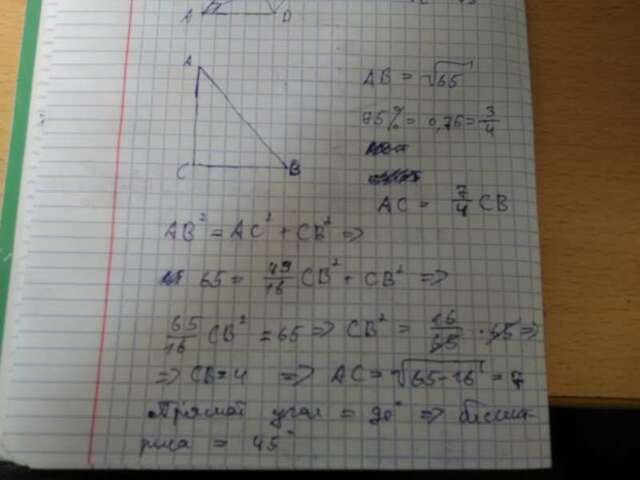 A D
A
C B
AB = √65
75% = 0,75 = 3/4
AC = 7/4 CB
AB² = AC² + CB² ⇒
65 = 49/16 CB² + CB² ⇒
65/16 CB² = 65 ⇒ CB² = 16/65 · 65 ⇒
⇒ CB = 4 ⇒ AC = √65-16 = 7
Прямой угол = 90° ⇒ биссект-
риса = 45°